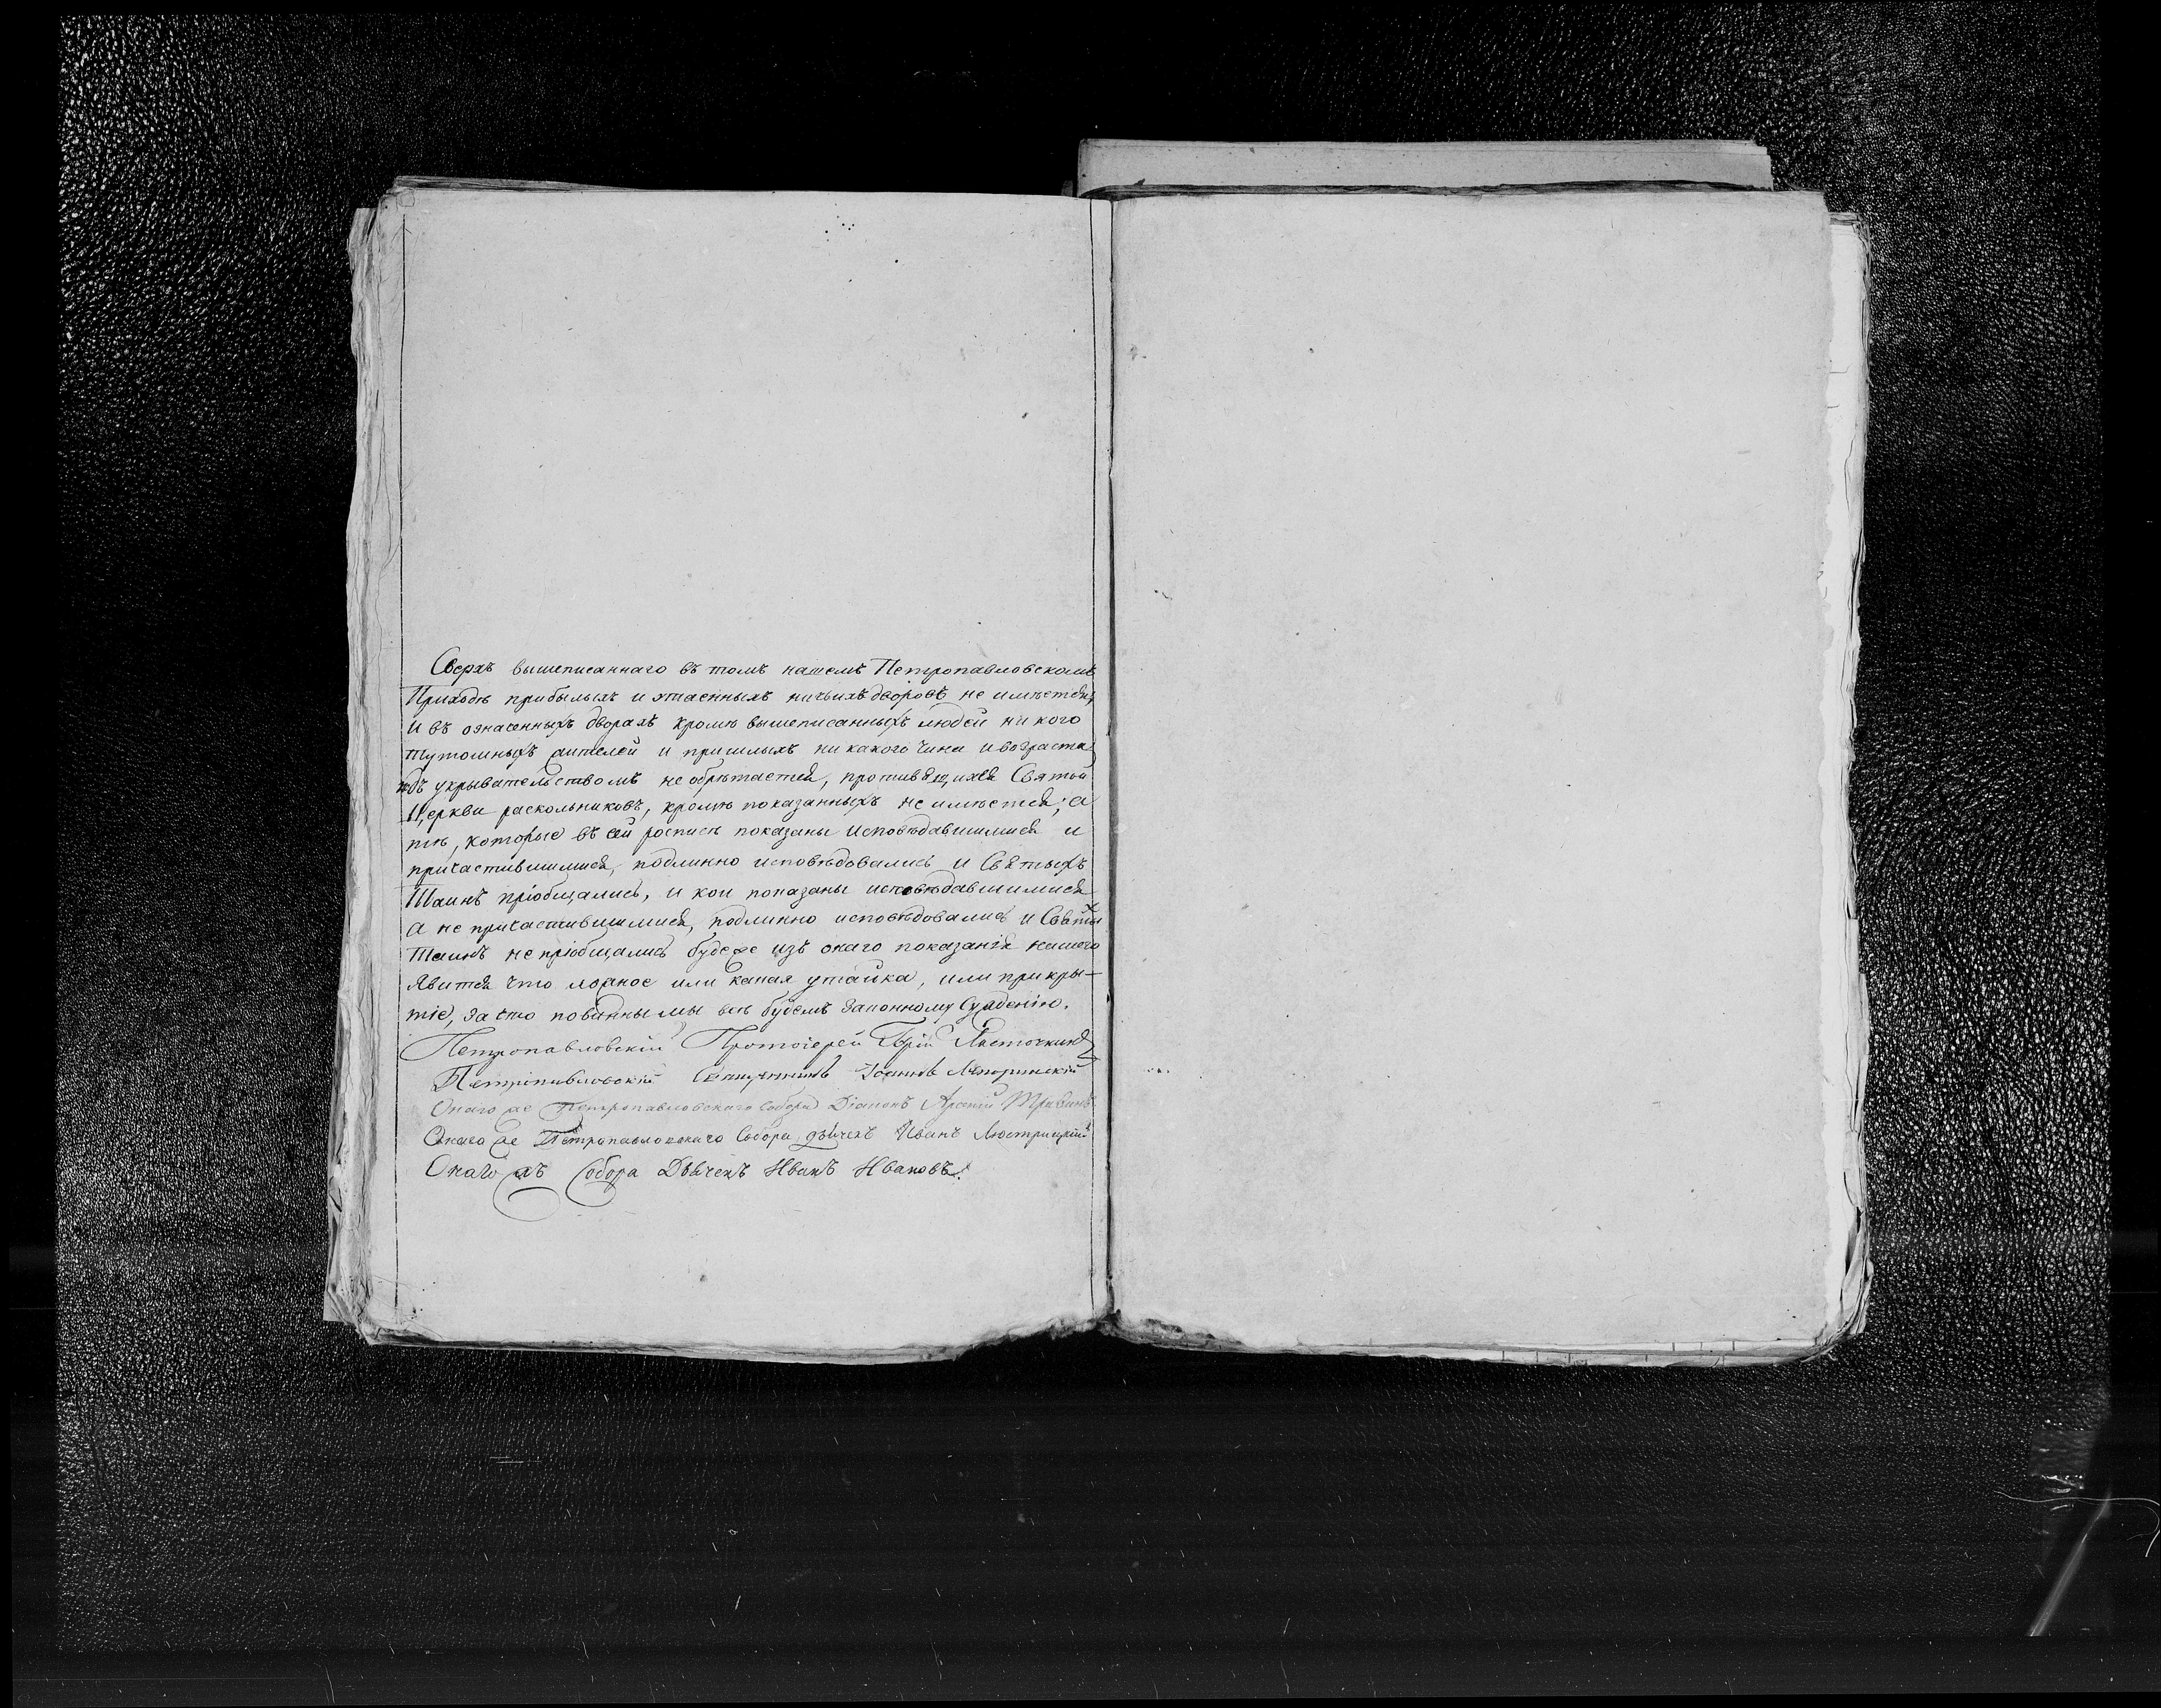 Сверхъ вышеписаннаго въ томъ нашемъ Петропавловскомъ
Приходѣ прибылыхъ и утаенныхъ ничьихъ дворовъ не имѣется,
И въ означенныхъ дворахъ кромѣ вышеписанныхъ людей ни кого
тутошныхъ жителей и пришлыхъ ни какого чина и возраста
подъ укрывательствомъ не обрѣтается, противящихся Святой
Церкви раскольниковъ, кромѣ показанныхъ не имѣется; а
тѣ, которые въ сей росписѣ показаны исповѣдавшимися и
причастившимися, подлинно исповѣдовались и Святыхъ
Таинъ пріобщались, и кои показаны исповѣдавшимися
а не причастившимися, подлинно исповѣдовались и Святых
Таинъ не пріобщались будеже изъ онаго показанія нашего
явится что ложное или какая утайка, или прикры-
тіе, за что повинны мы всѣ будемъ законному Сужденію.
Петропавловскій Протоіерей Ласточкинъ
Петропавловскій Священникъ Іоаннъ
Онаго же Петропавловскаго Собора Діаконъ Арсеній
Онаго же Петропавловскаго Собора дьячекъ Иванъ
Онаго жъ Собора Дьячекъ Иванъ Ивановъ.